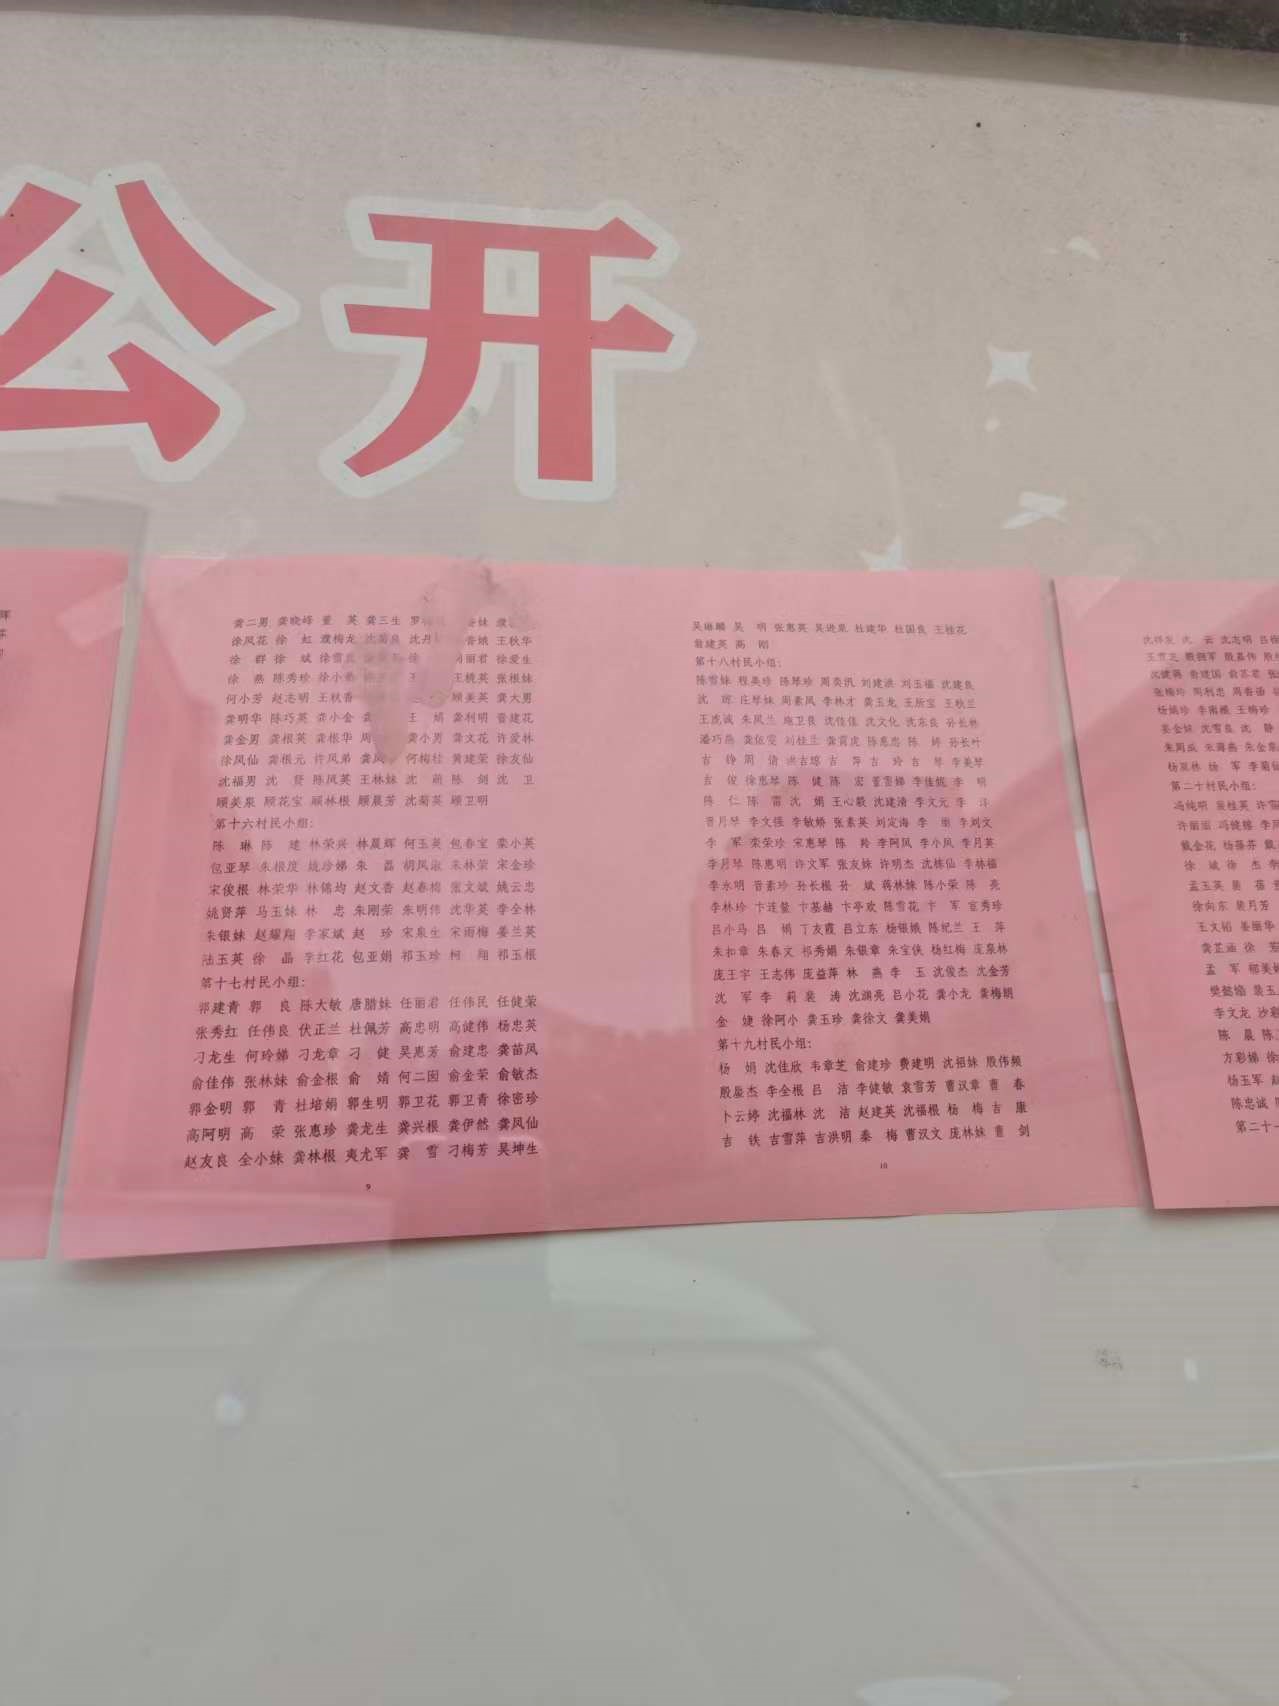 公开
龚二男 龚晓峰 董 英 龚三生
徐凤花 徐 虹 濮梅龙 沈菊良 沈丹 音娥 王秋华
徐 群 徐 斌 徐雪 徐 丽君 徐爱生
徐 燕 陈秀珍 徐小 王桃英 张根妹
何小芳 赵志明 王秋香 顾美英 龚大男
龚明华 陈巧英 龚小金 龚 王 娟 龚利明 晋建花
龚金男 龚根英 龚根华 周 龚小男 龚文花 许爱林
徐凤仙 龚根元 许凤弟 龚凤 何梅桂 黄建荣 徐友仙
沈福男 沈 贤 陈凤英 王林妹 沈 萌 陈 剑 沈 卫
顾美泉 顾花宝 顾林根 顾晨芳 沈菊英 顾卫明
第十六村民小组：
陈 琳 陆 建 林荣兴 林晨辉 何玉英 包春宝 栾小英
包亚琴 朱根度 姚珍娣 朱 磊 胡凤淑 朱林荣 宋金珍
宋俊根 林荣华 林锦均 赵文香 赵春梅 张文斌 姚云忠
姚贤萍 马玉妹 林 忠 朱刚荣 朱明伟 沈华英 李全林
朱银妹 赵耀翔 李家斌 赵 珍 宋泉生 宋雨梅 姜兰英
陆玉英 徐 晶 李红花 包亚娟 祁玉珍 柯 翔 祁玉根
第十七村民小组：
郭建青 郭 良 陈大敏 唐腊妹 任丽君 任伟民 任健荣
张秀红 任伟良 伏正兰 杜佩芳 高忠明 高健伟 杨忠英
刁龙生 何玲娣 刁龙章 刁 健 吴惠芳 俞建忠 龚苗凤
俞佳伟 张林妹 俞金根 俞 婧 何二囡 俞金荣 俞敏杰
郭金明 郭 青 杜培娟 郭生明 郭卫花 郭卫青 徐密珍
高阿明 高 荣 张惠珍 龚龙生 龚兴根 龚伊然 龚凤仙
赵友良 全小妹 龚林根 奭尤军 龚 雪 刁梅芳 吴坤生
9
吴琳麟 吴 明 张惠英 吴进泉 杜建华 杜国良 王桂花
翁建英 高 刚
第十八村民小组：
陈雪妹 程美珍 陈琴珍 周奕汎 刘建洪 刘玉福 沈建良
沈 琼 庄琴妹 周素凤 李林才 龚玉龙 王所宝 王秋兰
王虎诚 朱凤兰 施卫良 沈佳佳 沈文化 沈东良 孙长林
潘巧燕 龚依雯 刘桂兰 龚育虎 陈惠忠 陈 婷 孙长叶
吉 铮 周 倩 洪吉琼 吉 萍 吉 玲 吉 琴 李美琴
吉 俊 徐惠琴 陈 健 陈 宏 董雪娣 李佳妮 李 明
陈 仁 陈 雷 沈 娟 王心毅 沈建清 李文元 李 洋
晋月琴 李文强 李敏娇 张素英 刘定海 李 刚 李刘文
李 军 栾荣珍 宋惠琴 陈 羚 李阿凤 李小凤 李月英
李月琴 陈惠明 许文军 张友妹 许明杰 沈栋仙 李林福
李永明 晋素珍 孙长根 孙 斌 蒋林妹 陈小荣 陈 亮
李林珍 卞连鳌 卞基赫 卞亭欢 陈雪花 卞 军 宦秀珍
吕小马 吕 娟 丁友霞 吕立东 杨银娥 陈纪兰 王 萍
朱扣章 朱春文 祁秀娟 朱银章 朱宝侠 杨红梅 庞泉林
庞王宇 王志伟 庞益萍 林 燕 李 玉 沈俊杰 沈金芳
沈 军 李 莉 裴 涛 沈渊亮 吕小花 龚小龙 龚梅娟
金 婕 徐阿小 龚玉珍 龚徐文 龚美娟
第十九村民小组：
杨 娟 沈佳欣 韦章芝 俞建珍 费建明 沈招妹 殷伟频
殷晟杰 李全根 吕 洁 李健敏 袁雪芳 曹汉章 曹 春
卜云婷 沈福林 沈 洁 赵建英 沈福根 杨 梅 吉 康
吉 铁 吉雪萍 吉洪明 秦 梅 曹汉文 庞林妹 曹 剑
10
沈 云 沈志明 吕
殷拥军 殷嘉伟
俞建国 俞苏君
张梅玲 周利忠 周香函
杨娟珍 李南樵 王梅珍
姜金妹 沈雪良 沈 静
朱周成 朱海燕 朱金泉
杨泉林 杨 军 李菊仙
第二十村民小组：
冯纯明 吴桂英 许雪
许丽丽 冯健榕 李凤
戴金花 杨蓓芬 戴
徐 斌 徐 杰 李
孟玉英 裴 蓓
徐向东 裴月芳
王文裕 姜丽华
龚芷涵 徐 芳
孟 军 郁美娣
樊懿婚 裴玉
李文龙 沙彩
陈 晨 陈
方彩娣 徐
杨玉军 赵
陈忠诚
第二十一